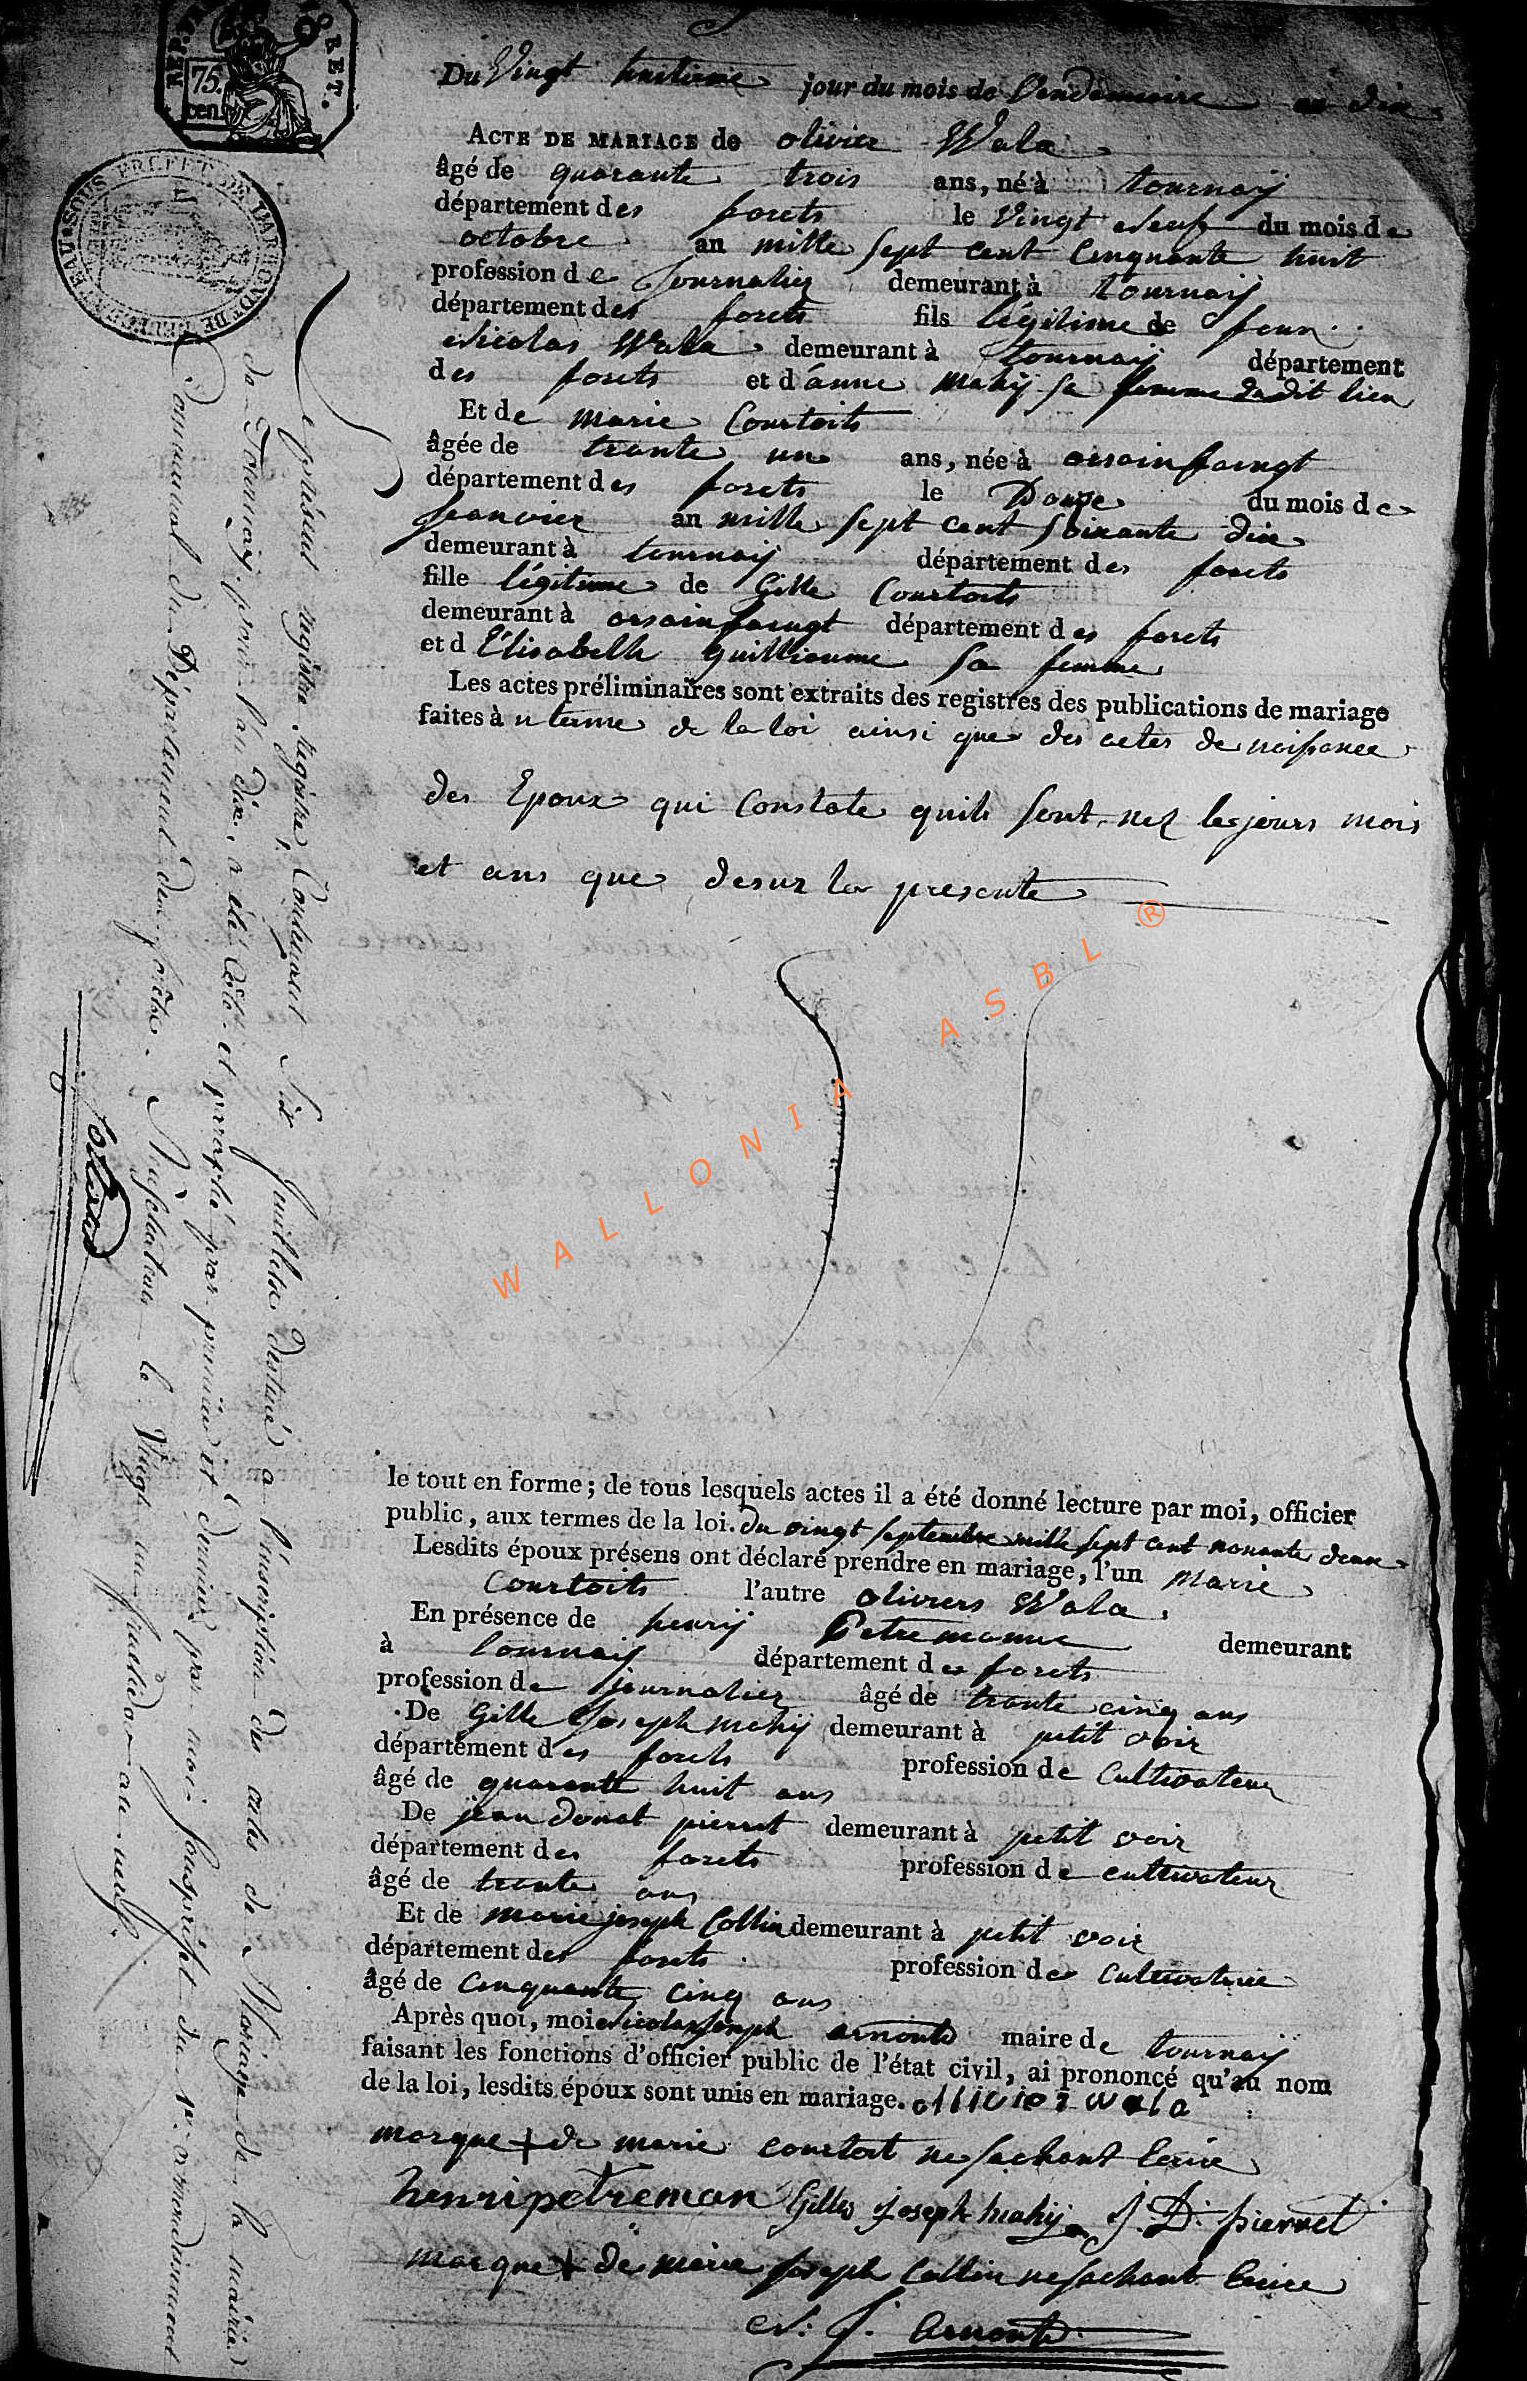 REP. FRA
75.
cen.
RET.
SOUS PREFET DE L'ARRONDT. DE NEUFCHATEAU
Du Vingt huitieme jour du mois de Vendemiaire an dix
ACTE DE MARIAGE de olivier Wala
âgé de quarante trois ans, né à tournaÿ
département des forets le Vingt neuf du mois de
octobre an mille sept cent Cinquante huit
profession de Journalier demeurant à tournaÿ
département des forets fils légitime de feux
Nicolas Wala demeurant à tournaÿ département
des forets et d'anne Mahÿ sa femme dudit lieu
Et de marie Courtoits
âgée de trente une ans, née à orsainfaingt
département des forets le Douze du mois de
Janvier an mille sept cent soixante dix
demeurant à tournaÿ département des forets
fille légitime de Gille Courtoits
demeurant à orsainfaingt département des forets
et d Élisabelle guilliaume sa femme
Les actes préliminaires sont extraits des registres des publications de mariage
faites à u terme de la loi ainsi que des actes de naissance
des Epoux qui Constate quils sont nez les jours mois
et ans que desur la presente
WALLONIA ASBL ®
le tout en forme ; de tous lesquels actes il a été donné lecture par moi, officier
public, aux termes de la loi. du vingt septembre mille sept cent nonante deux
Lesdits époux présens ont déclaré prendre en mariage, l'un Marie
Courtoits l'autre oliviers Wala
En présence de henrÿ Petremanne demeurant
à tournaÿ département des forets
profession de journalier âgé de trente cinq ans
De Gille Joseph mahÿ demeurant à petit voir
département des forets profession de Cultivateur
âgé de quarante huit ans
De jean donat pierret demeurant à petit voir
département des forets profession de cultivateur
âgé de trente ans
Et de marie joseph Collin demeurant à petit voir
département des forets profession de Cultivatrice
âgé de Cinquante cinq ans
Après quoi, moi Nicolas Joseph arnould maire de tournaÿ
faisant les fonctions d'officier public de l'état civil, ai prononcé qu'au nom
de la loi, lesdits époux sont unis en mariage. ollivier wala
marque + de marie courtoit ne sachant Ecrire
henri petreman Gilles Joseph mahÿ J. D. pierret
marque + de marie joseph Collin ne sachant Ecrire
N. J. Arnould
Le présent registre Registre, Contenant Six feuillets destiné à l'inscription des actes de Mariage de la mairie
de Tournay, pour l'an dix, a été Coté et paraphé par premier et dernier par nous Souspréfet du 4e. arrondissement
Communal du Département des forêts. Neufchateau le Vingt un fructidor an neuf.